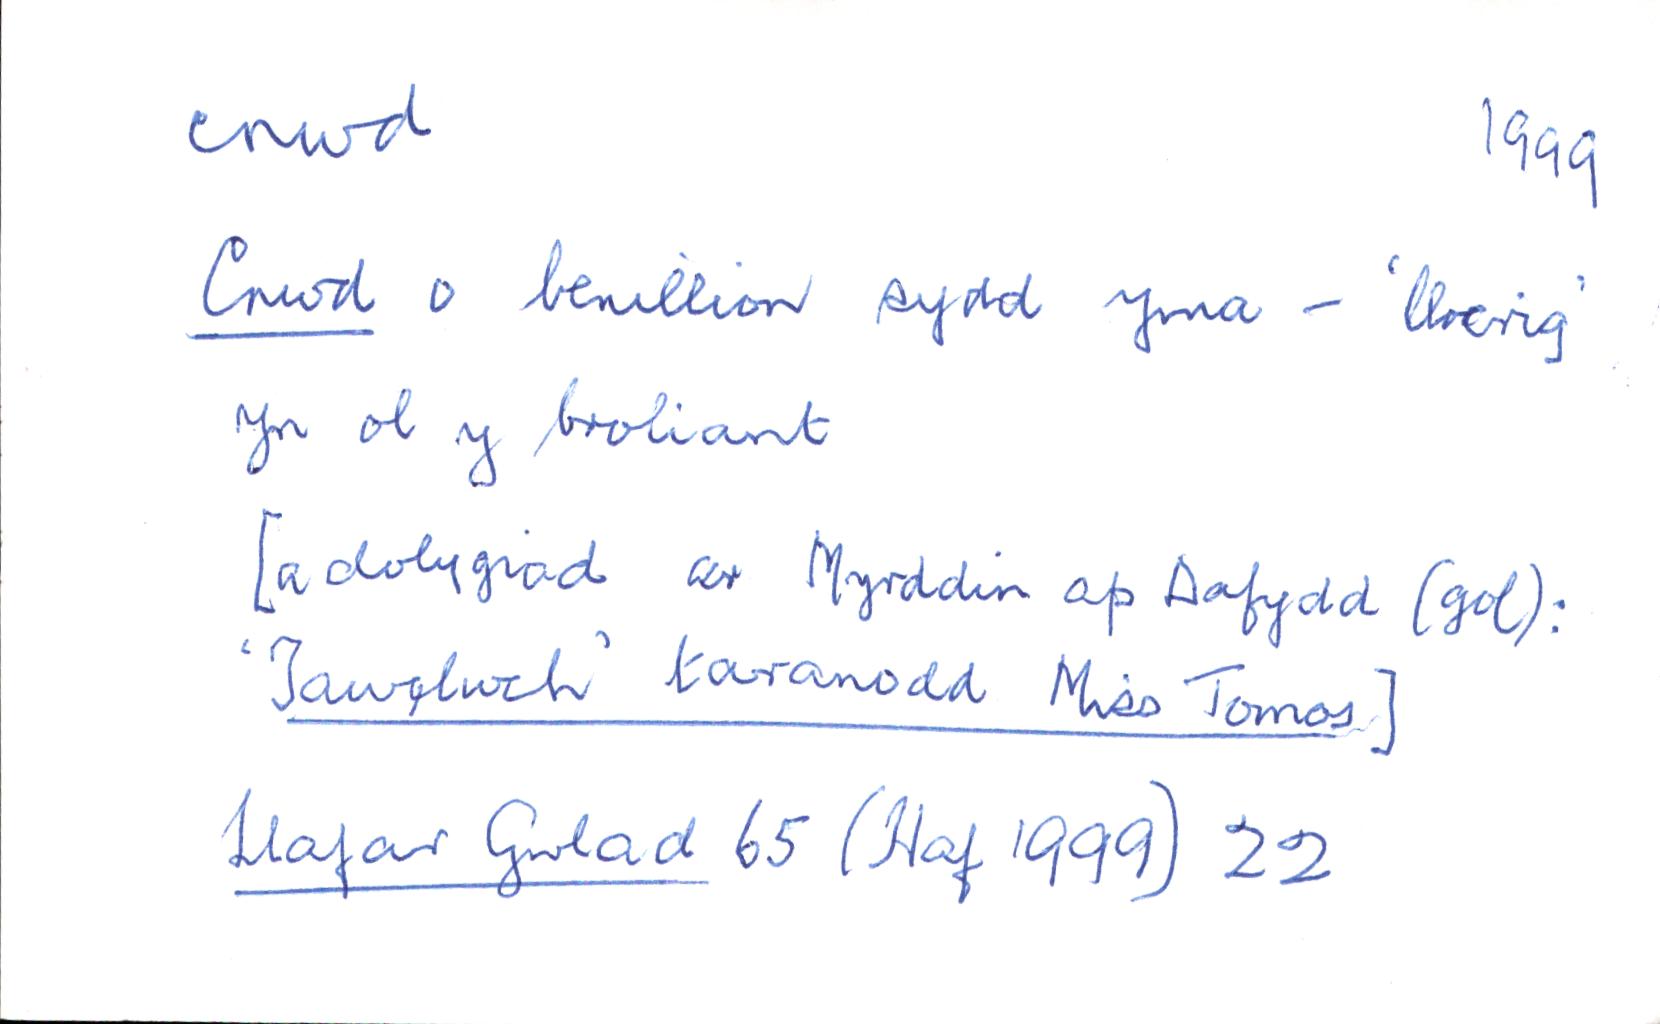 cnwd 1999
Cnwd o benillion sydd yma - 'lloerig'
yn ol y broliant
[adolygiad ar Myrddin ap Dafydd (gol):
'Tawelwch' taranodd Miss Tomos]
Llafar Gwlad 65 (Haf 1999) 22